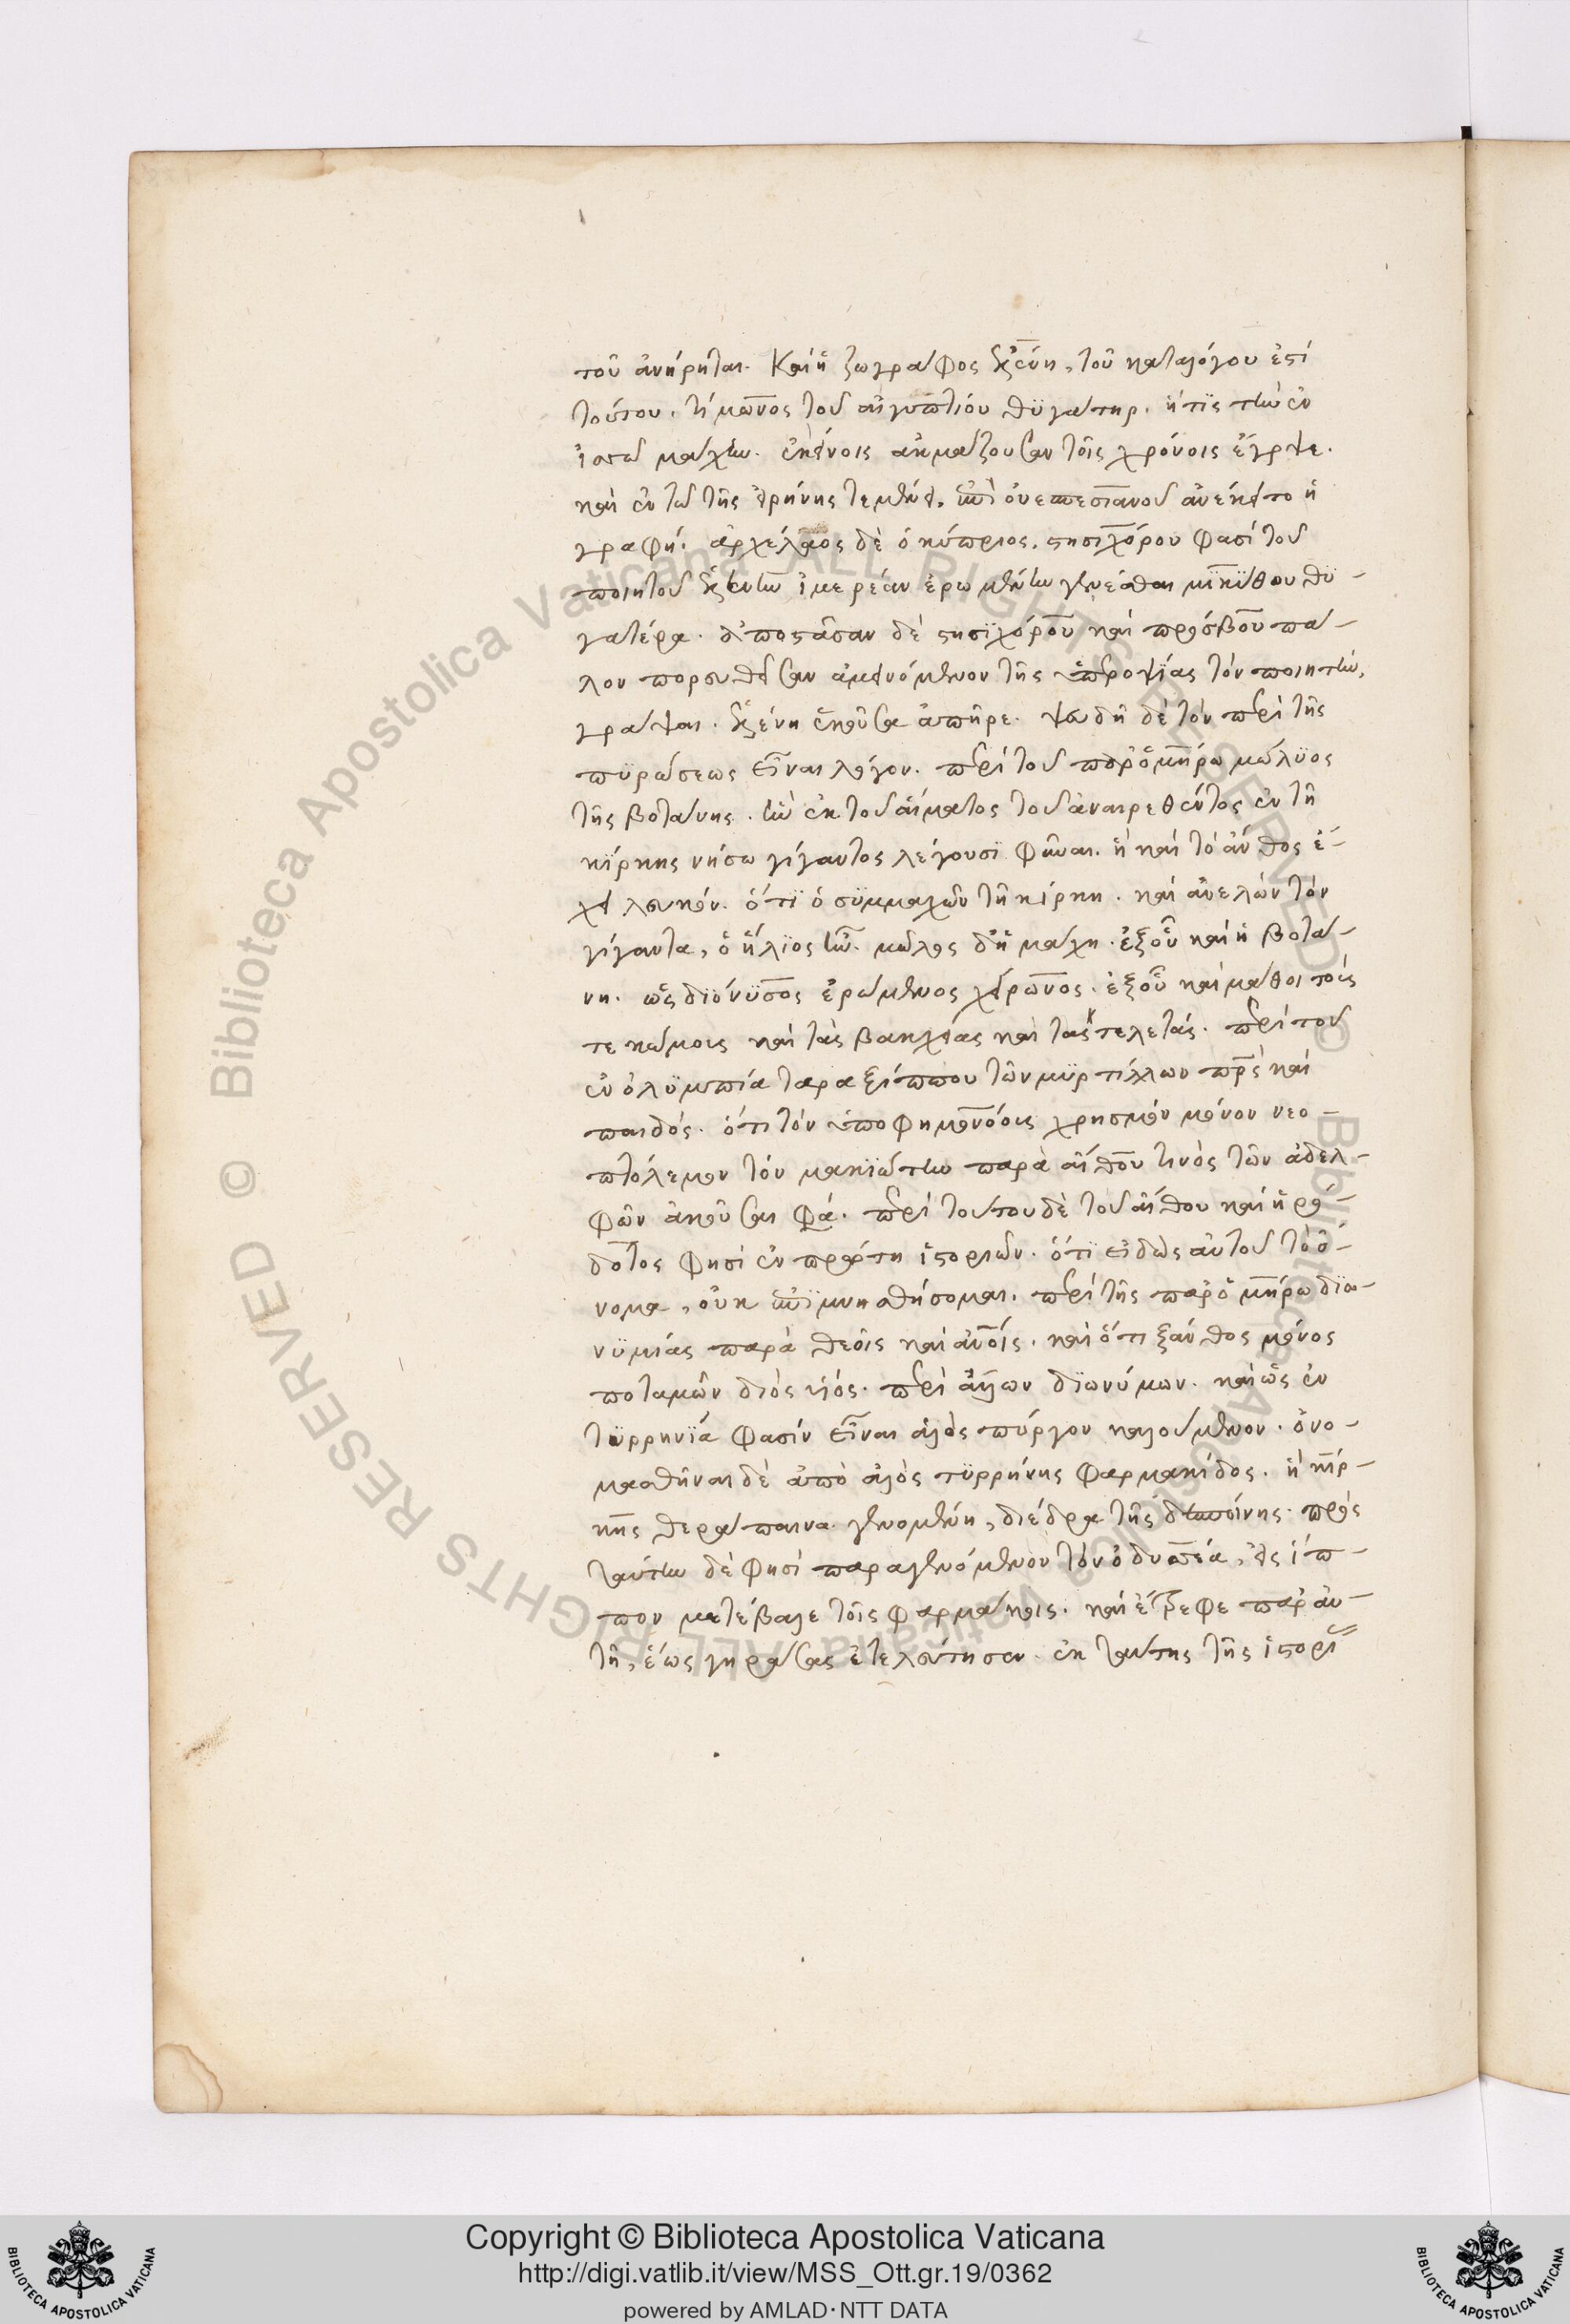 τοῦ ἀνήρηται. Καὶ ἡ ζωγράφος ἑλένη, τοῦ καταλόγου ἐστὶ
τούτου. τίμωνος τοῦ αἰγυπτίου θϋγάτηρ. ἥτϊς τὴν ἐν
ἰσσῶ μάχην. ἐκείνοις ἀκμάζουσαν τοῖς χρόνοις ἔγραψε.
καὶ ἐν τῶ τῆς εἰρήνης τεμένει. ἐπὶ οὐεσπεσιανοῦ ἀνέκειτο ἡ
γραφή. ἀρχέλαος δὲ ὁ κύπριος. στησιχόρου φασὶ τοῦ
ποιητοῦ ἑλένην ἱμερέαν ἐρωμένην γενέσθαι μϊκϋθου θϋ-
γατέρα. ἀποστᾶσαν δὲ στησϊχόρου καὶ πρὸς βου πά-
λον πορευθεῖσαν ἀμεινόμενον τῆς ὑπεροψίας τὸν ποιητὴν,
γράψαι. ἑλένη ἑκοῦσα ἀπῆρε. ψευδῆ δὲ τὸν περὶ τῆς
πϋρώσεως εἶναι λόγον. περὶ τοῦ παρ' ὁμήρω μώλϋος
τῆς βοτάνης. ἣν ἐκ τοῦ αἵματος τοῦ ἀναιρεθέντος ἐν τῆ
κϊρκης νήσω γίγαντος λέγουσϊ φῦναι. ἣ καὶ τὸ ἄνθος ἔ-
χει λευκόν. ὅτϊ ὁ σϋμμαχῶν τῆ κίρκη. καὶ ἀνελὼν τὸν
γίγαντα, ὁ ἥλϊος ἦν. μῶλος δ' ἡ μάχη. ἐξ οὗ καὶ ἡ βοτά-
νη. ὡς δϊόνϋσος ἐρώμενος χείρωνος. ἐξ οὗ καὶ μάθοι τούς
τε κώμοις καὶ τὰς βακχείας καὶ τὰς τελετάς. περὶ τοῦ
ἐν ὀλϋμπία ταραξίππου τῶν μϋρτίλλων πρς καὶ
παιδός. ὅτι τὸν ὑπὸ φημονόοις χρησμὸν μόνον νεο-
πτόλεμον τὸν μακϊώτην παρὰ αἴθου τινὸς τῶν ἀδελ-
φῶν ἀκοῦσαι φά. περὶ τούτου δὲ τοῦ αἴθου καὶ ἡρό-
δοτος φησὶ ἐν πρώτη ἱστοριῶν. ὅτϊ εἰδὼς αὐτοῦ τὸ ὄ-
νομα, οὐκ ἐπϊμνησθήσομαι. περὶ τῆς παρ' ὁμήρω δϊω-
νϋμιάς παρὰ θεοῖς καὶ ἀνοῖς. καὶ ὅτι ξάνθος μόνος
ποταμῶν διὸς υἱός. περὶ ἄλλων δϊωνύμων. καὶ ὡς ἐν
τϋρρηνϊα φασὶν εἶναι ἁλὸς πύργον καλούμενον. ὀνο-
μασθῆναι δὲ ἀπὸ ἁλὸς τϋρρήνης φαρμακίδος. ἣ κίρ-
κης θεράπαινα γενομένη, διέδρα τῆς δεσποίνης. πρὸς
ταύτην δὲ φησὶ παραγενόμενον τὸν ὀδυσσέα, εἰς ἵπ-
πον μετέβαλε τοῖς φαρμάκοις. καὶ ἔτρεφε παρ' αὑ-
τῆ, ἕως γηράσας ἐτελεύτησεν. ἐκ ταύτης τῆς ἱστορί
Copyright © Biblioteca Apostolica Vaticana
http://digi.vatlib.it/view/MSS_Ott.gr.19/0362
powered by AMLAD·NTT DATA